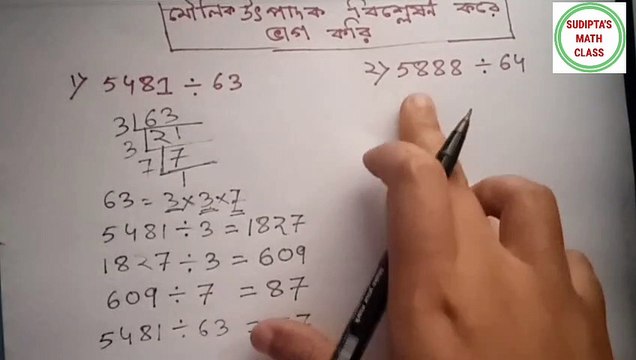 মৌলিক উৎপাদক বিশ্লেষণ করে
ভাগ করি
SUDIPTA'S
MATH
CLASS
১) 5481 ÷ 63
3 63
3 21
7 7
1
63 = 3 × 3 × 7
5481 ÷ 3 = 1827
1827 ÷ 3 = 609
609 ÷ 7 = 87
5481 ÷ 63 =
২) 5888 ÷ 64